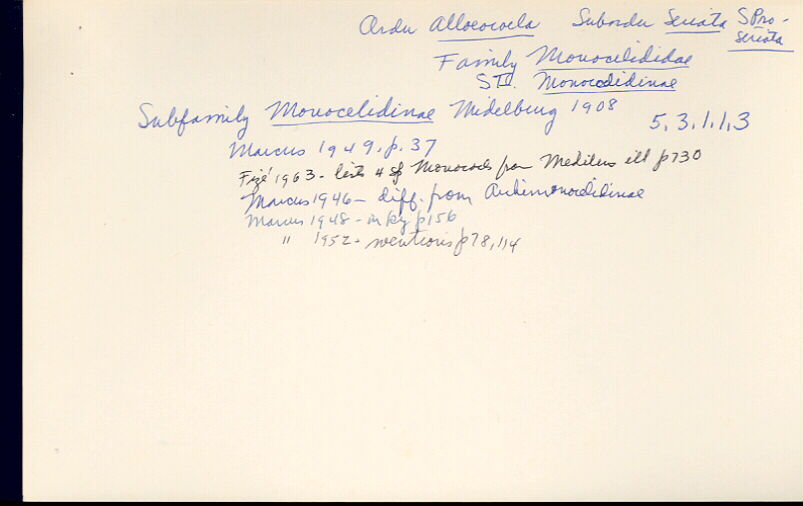 Order Alloeocoela Suborder Seriata S Pro-
seriata
Family Monocelididae
S.F. Monocelidinae
Subfamily Monocelidinae Midelburg 1908 5,3.1.1.3
Marcus 1949. p. 37
Fizé 1963 - lists 4 sp Monocoels from Mediterr ill p730
Marcus 1946 - diff. from Archimonocelidinae
Marcus 1948 - in key p156
" 1952 - mentions p78, 114